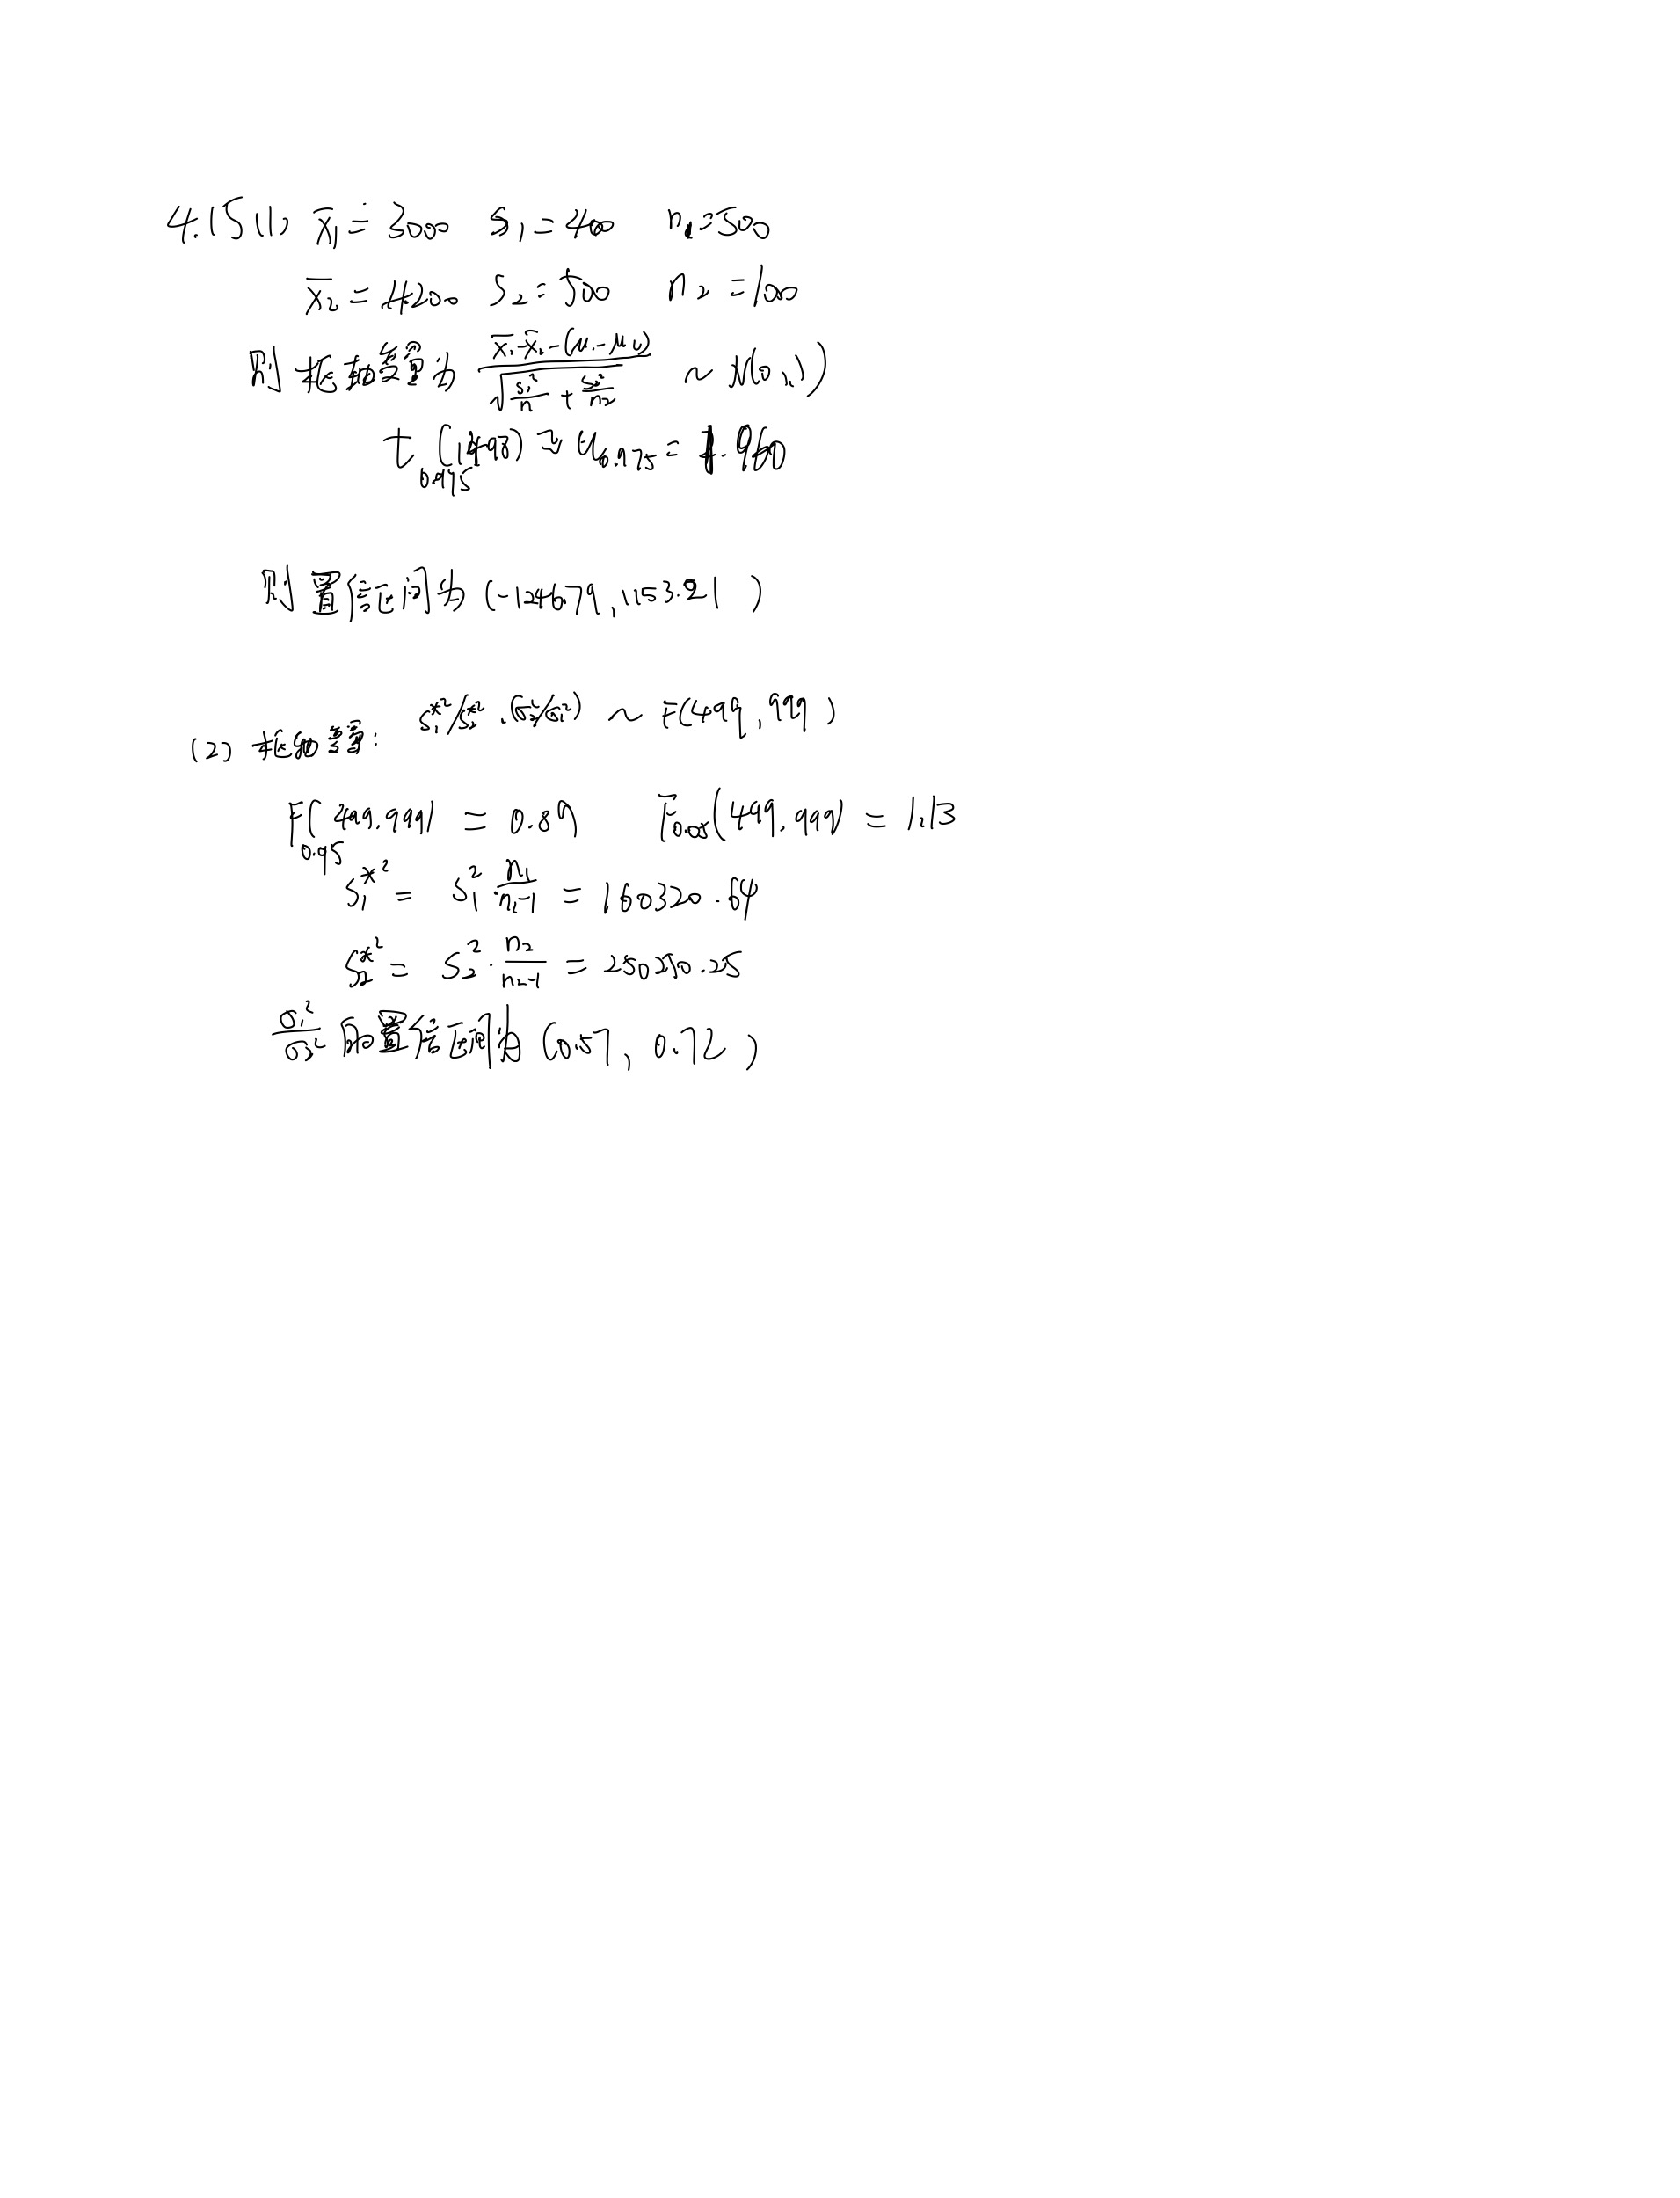 4.15 (1) x̄₁ = 3000 S₁ = 400 n₁ = 500
x̄₂ = 4200 S₂ = 500 n₂ = 100
则枢轴变量为 (x̄₁-x̄₂-(μ₁-μ₂))/√(S₁²/n + S₂²/n₂) ~ N(0,1)
t₀.₉₇₅(1498) ≈ u₀.₉₇₅ = 1.960
则置信区间为 (-1246.79, 1153.21)
(2) 枢轴变量: S₁*²/S₂*² · (σ₂²/σ₁²) ~ F(499, 999)
F₀.₉₅(499, 999) = 0.89 F₀.₀₅(499, 999) = 1.13
S₁*² = S₁² · n₁/(n₁-1) = 160320.64
S₂*² = S₂² · n₂/(n₂-1) = 250250.25
σ₁²/σ₂² 的置信区间为 (0.57, 0.72)